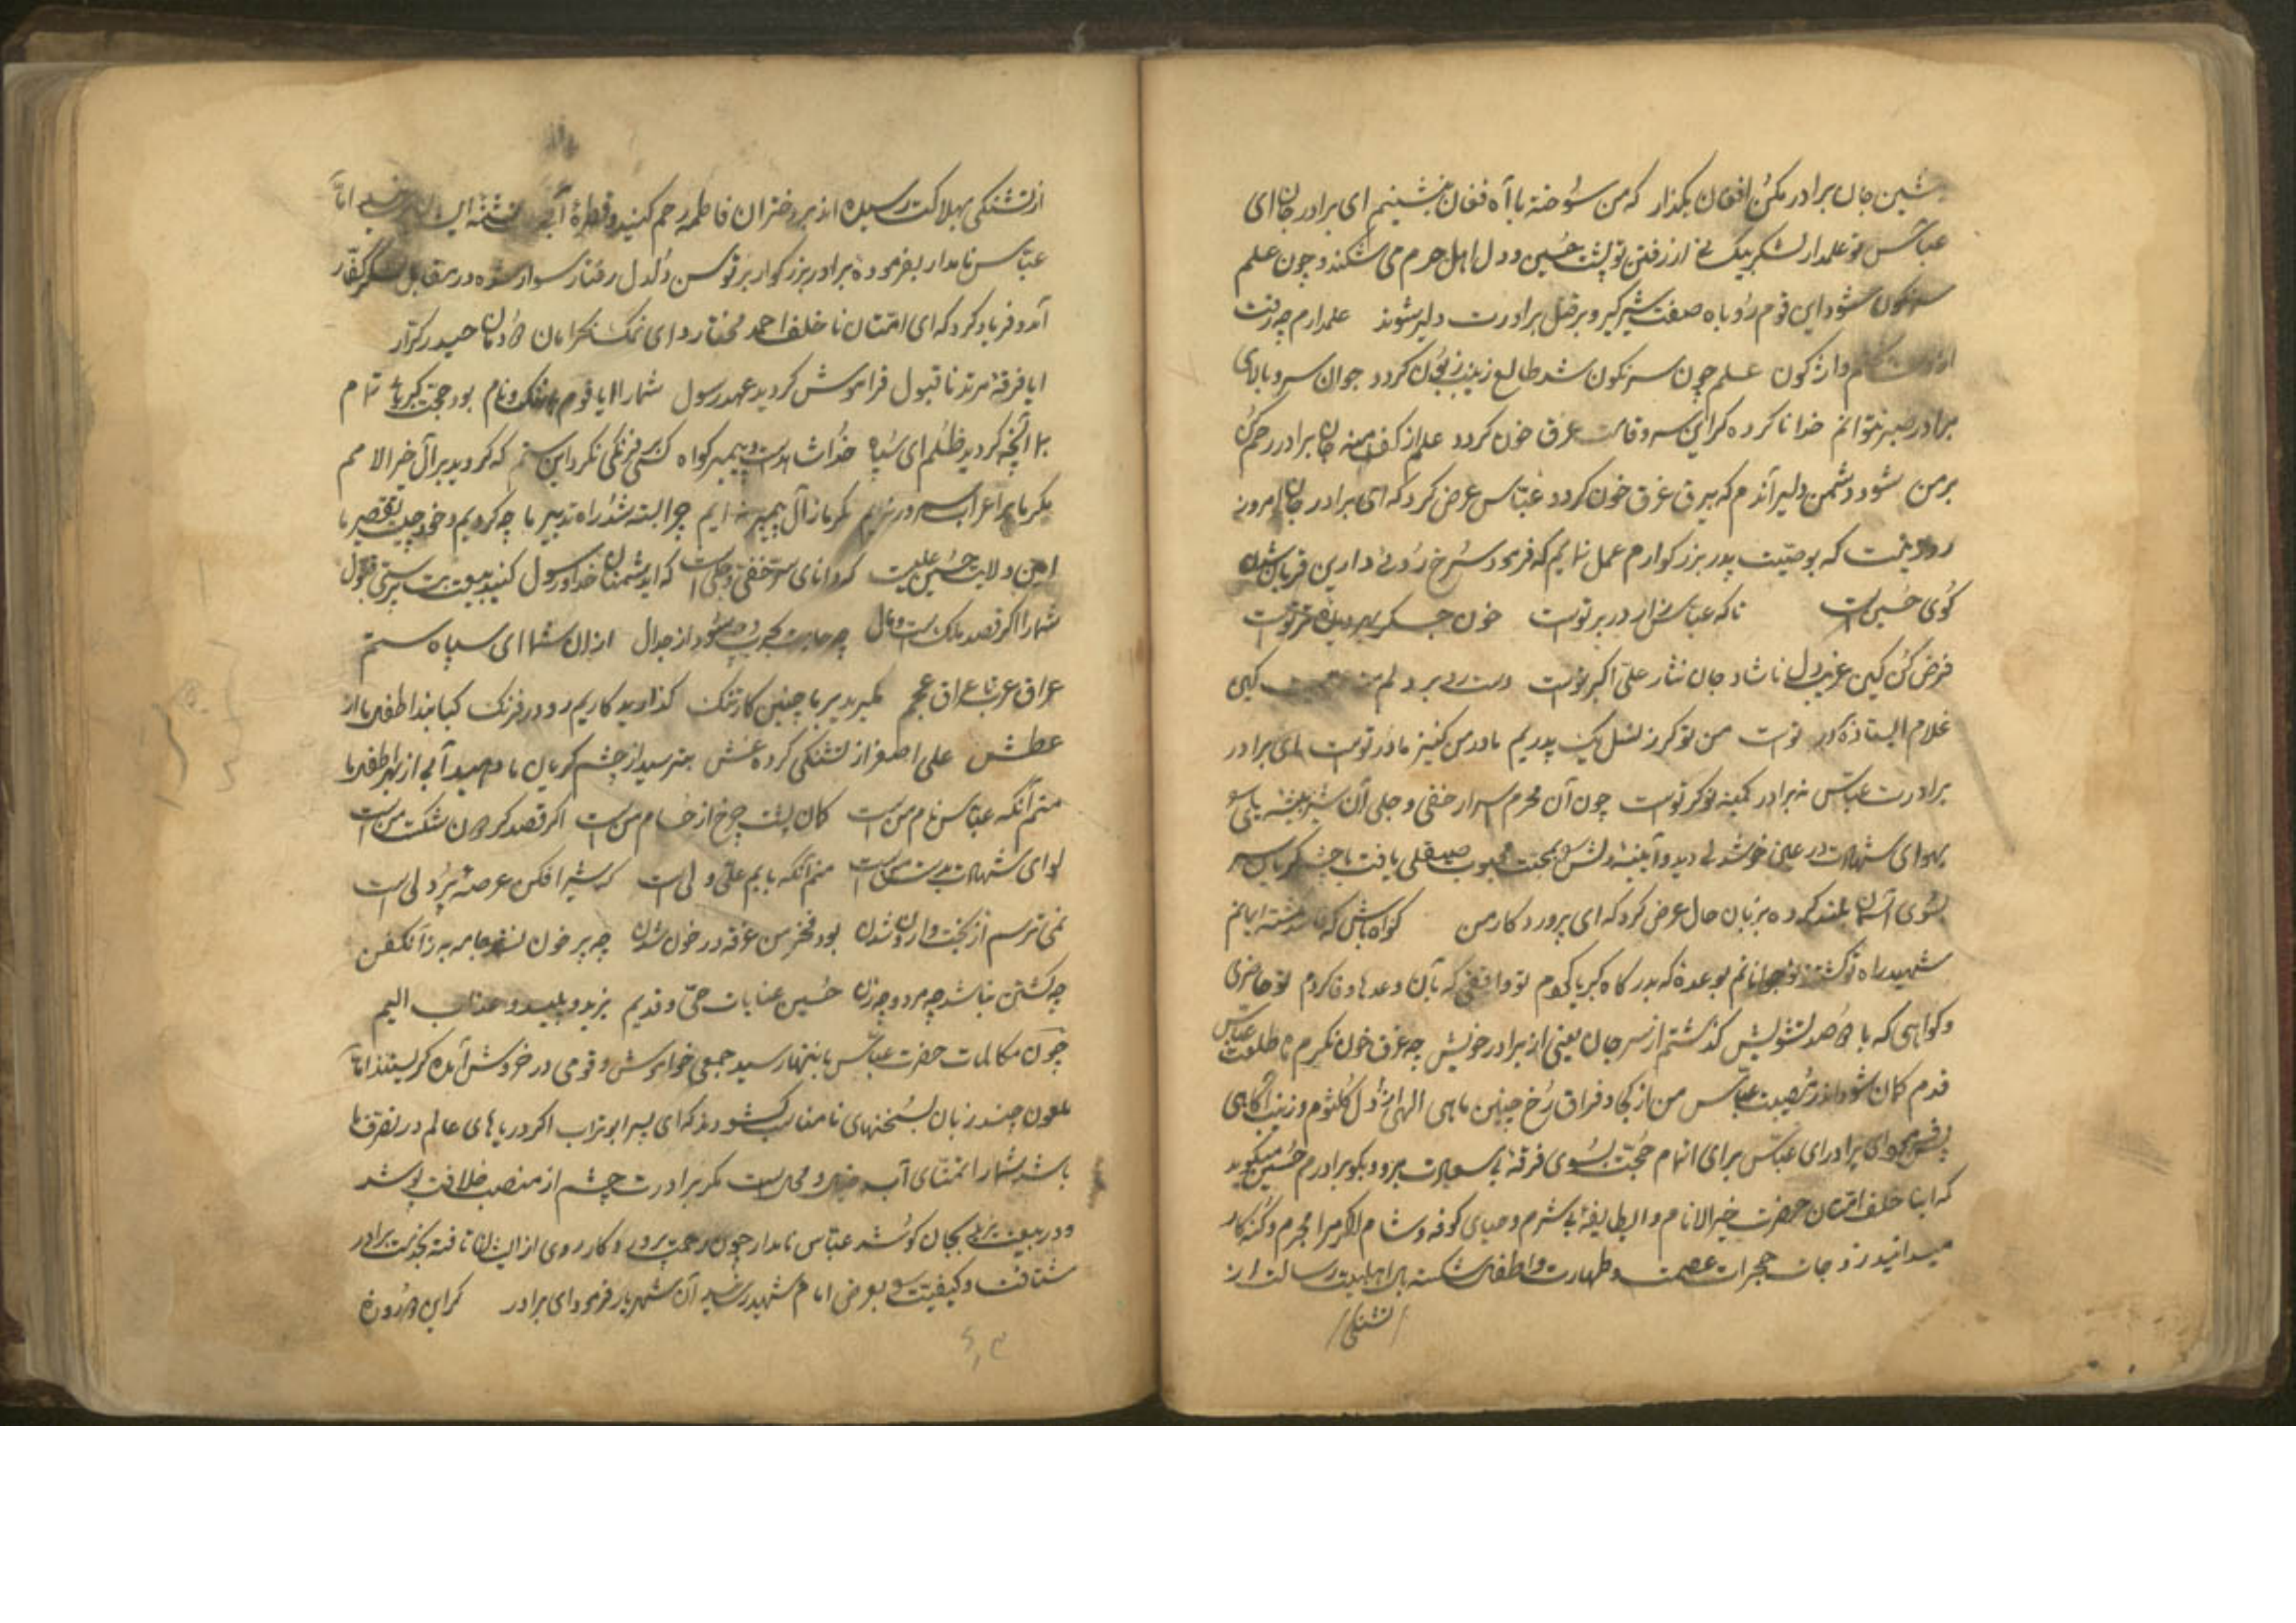 شین جان برادر مکن افغان بگذار که من سوخته با آه فغان بنشینم ای برادر جان ای
عباس تو علمدار لشکر از رفتن تو پشت حسین و دل اهل حرم می شکند و چون علم
سرنکون شود این قوم روباه صفت شیر گیر و بر قتل برادرت دلیر شوند علمدارم چه رفت
واژکون علم چون سرنکون شد طالع زینب زبون کردد جوان سرو بالای
برادر صبر نتوانم خدا ناکرده کر این سرو قامت غرق خون کردد علم از کف منه جان برادر رحم کن
بر من شود دشمن دلیر آندم که بیرق غرق خون کردد عباس عرض کرد که ای برادر جان امروز
روزیست که بوصیت پدر بزرکوارم عمل نمایم که فرمود سرخ روئی دارین قربان شدن
کوی حسین است تا که عباس زار در بر توست خون جکر
فرض کن کین غریب دل ناشاد جان نثار علی اکبر توست کین
غلام ایستاده در توست من تو کر ز نسل یک پدریم مادر من کنیز مادر توست ای برادر
برادرت عباس نه برادر کمینه نوکر توست چون آن محرم اسرار خفی و جلی آن شیر بیشه یلی سر
بهوای شهادت در علی خوشدلی دید و آینه دلش بمحنت محبوب صیقلی یافت با چشم کریان سر
بسوی آسمان بلند کرده بزبان حال عرض کرد که ای پروردکار من کواه باش که
شهید راه تو کشتند نوجوانانم بوعده که بدرکاه کبریا کردم تو واقفی که بآن وعدها وفا کردم تو حاضری
و کواهی که با صد تشویش کذشتم از سر جان یعنی از برادر خویش چه غرق خون نکرم ماه طلعت عباس
قدم کمان شود اندر مصیبت عباس من از کجا و فراق رخ چنین ماهی الهی از دل کلثوم و زینب آکاهی
پس فرمود ای برادر ای عباس برای اتمام حجت بسوی فرقه بی سعادت برو و بکو برادرم حسین میکوید
که ای ناخلف امتان حضرت خیر الانام و ای طایفه بی شرم و حیای کوفه و شام اکر مرا مجرم و کنه کار
میدانید زوجات حجرات عصمت و طهارت و اطفال شکسته بال اهلبیت رسالت از
تشنکی
از تشنکی بهلاکت رسیده اند بر دختران فاطمه رحم کنید و قطره آبی اما
عباس نامدار بفرموده برادر بزرکوار بر توسن دلدل رفتار سوار شده در مقابل لشکر کفار
آمد و فریاد کرد که ای امتان ناخلف احمد مختار و ای نمک بحرامان دودمان حیدر کرار
ایا فرقه مرتد ناقبول فراموش کردید عهد رسول شما را ایا قوم بی ننک و نام بود حجت کبریا تمام
هر آنچه کردید ظلم ای سپاه خداشاهد است و پیمبر کواه کسی فرنکی نکرد این ستم که کردید بر آل خیر الامم
مکر ما بر اعراب سرور نه ایم مکر ما ز آل پیمبر نه ایم چرا بسته شد راه تدبیر ما چه کردیم و خود چیست تقصیر ما
امین ولایت حسین علیست که دانای سر خفی و جلی است که ای دشمنان خدا و رسول کنید بیعت بت پرستی قبول
شما را اکر قصد ملک است و مال چه حاجت بحرب و چه سود از جدال از آن شما ای سپاه ستم
عراق عرب تا عراق عجم مکیرید بر ما چنین کار تنک کذارید کاریم رو در فرنک کبابند اطفال ما از
عطش علی اصغر از تشنکی کرده غش بترسید از چشم کریان ما دهید آبی از بهر طفلان ما
منم آنکه عباس نام من است کمان پشت چرخ از حسام من است اکر قصد کردون شکست من است
لوای شهادت بدست من است منم آنکه بابم علی ولی است که شیر افکن عرصه پر دلی است
نمی ترسم از بخت وارون شدن بود فخر من غرقه در خون شدن چه پر خون شد جامه به زآن کفن
چه کشتن بباشد چه مرد و چه زن حسین عنایات حی و قدیم یزید و پلید و عذاب الیم
چون مکالمات حضرت عباس بانتها رسید جمعی خواموش و قومی در خروش آمده کریستند اما
ملعون چند زبان بسخنهای نامناسب کشودند که ای پسر ابو تراب اکر دریاهای عالم در تصرف ما
باشد شما را تمنای آب مکر برادرت چشم از منصب خلافت پوشد
و در بیعت یزید بجان کوشد عباس نامدار چون رحمت پروردکار روی از ایشان تافته بخدمت برادر
شتافت و کیفیت بعرض امام شهید رسید آن شهریار فرمود ای برادر کر این